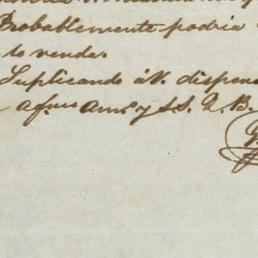 Probablemente podria
lo venda.
Suplicando á V. dispen
af.mo am.o y S.S. Q. B.